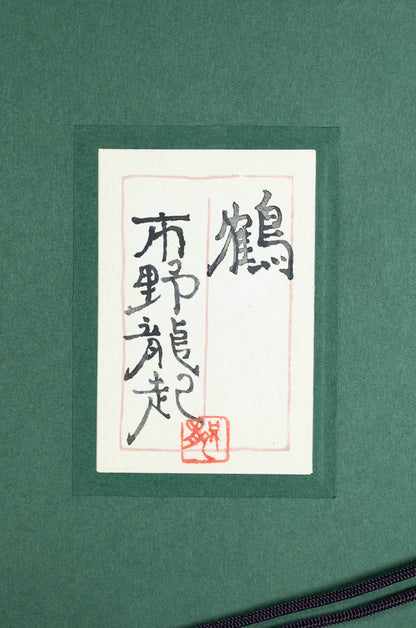 鶴
市野龍起